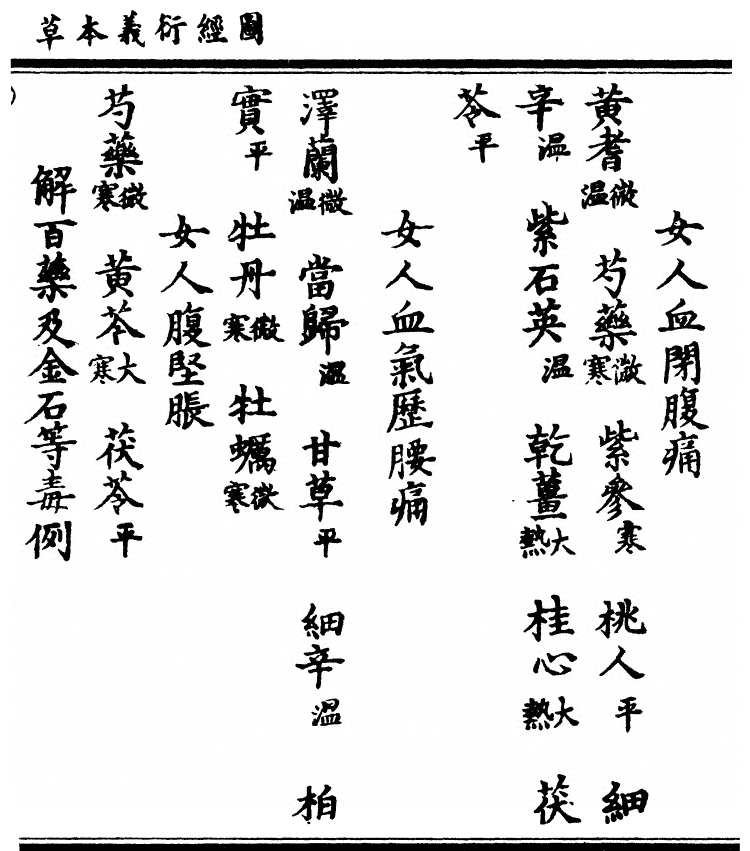 圖經衍義本草
女人血閉腹痛
黃耆微溫 芍藥微寒 紫參寒 桃人平 細
辛溫 紫石英溫 乾薑大熱 桂心大熱 茯
苓平
女人血氣歷腰痛
澤蘭微溫 當歸溫 甘草平 細辛溫 柏
實平 牡丹微寒 牡蠣微寒
女人腹堅脹
芍藥微寒 黃芩大寒 茯苓平
解百藥及金石等毒例